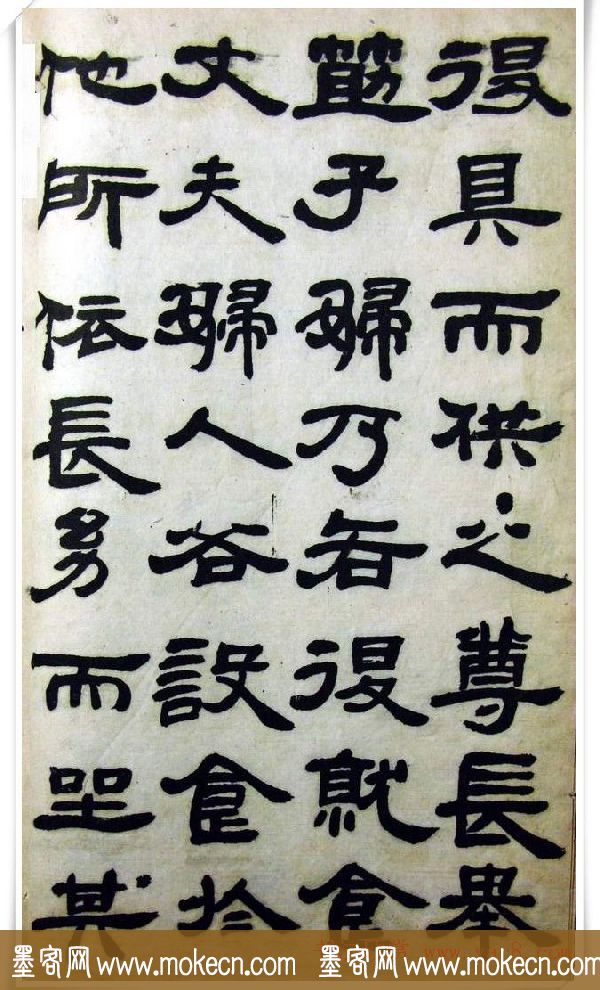 退具而供之尊長舉
筯子婦乃各退就食
丈夫婦人各設食於
他所依長幼而坐其
墨客网 www.mokecn.com 墨客网 www.mokecn.com